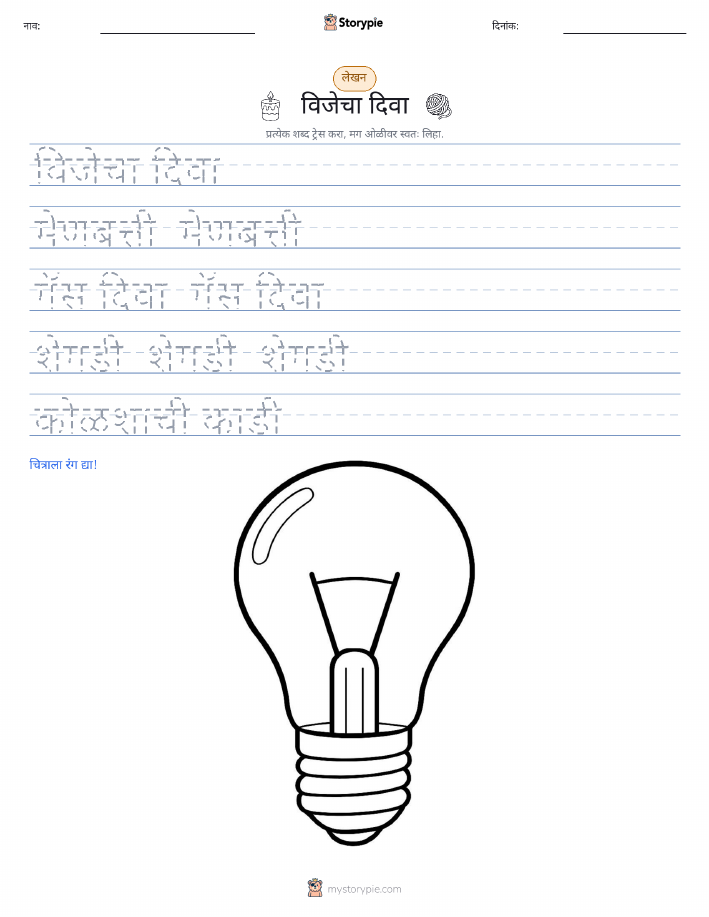 नाव:
Storypie
दिनांक:
लेखन
विजेचा दिवा
प्रत्येक शब्द ट्रेस करा, मग ओळीवर स्वतः लिहा.
विजेचा दिवा
मेणबत्ती मेणबत्ती
गॅस दिवा गॅस दिवा
शेगडी शेगडी शेगडी
कोळशाची काडी
चित्राला रंग द्या!
mystorypie.com